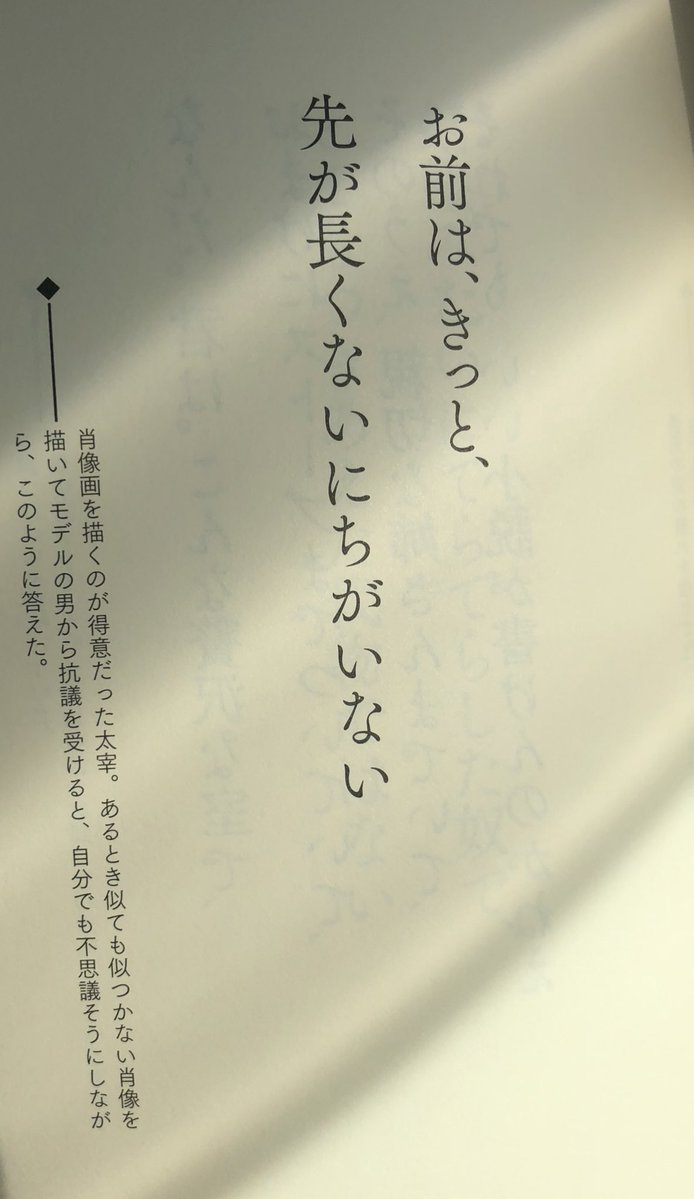 お前は、きっと、
先が長くないにちがいない
肖像画を描くのが得意だった太宰。あるとき似ても似つかない肖像を
描いてモデルの男から抗議を受けると、自分でも不思議そうにしなが
ら、このように答えた。